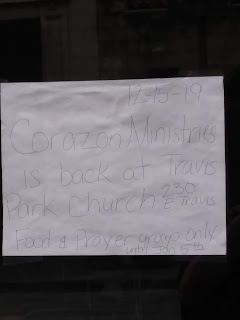 12-15-19
Corazon Ministries
is back at Travis
Park Church 230
E Travis
Food & Prayer group only
until Jan 5th